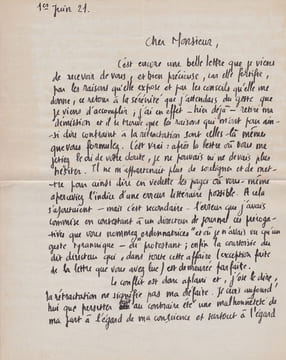 1er Juin 21.
Cher Monsieur,
C'est encore une belle lettre que je viens
de recevoir de vous, et bien précieuse, car elle fortifie,
par les raisons qu'elle expose et par les conseils qu'elle me
donne, ce retour à la sérénité que j'attendais du geste que
je viens d'accomplir; j'ai en effet - hier déjà - retiré ma
démission et il se trouve que les raisons qui m'ont pour ain-
si dire contraint à la rétractation sont celles-là même
que vous formulez. C'est vrai: après la lettre où vous me
jetiez le oui de votre doute, je ne pouvais ni ne devais plus
hésiter. Il ne m'apparaissait plus de souligner et de met-
tre pour ainsi dire en vedette les pages où vous-même
aperceviez l'indice d'une erreur littéraire possible. A cela
s'ajoutaient - mais c'est secondaire - l'erreur que j'avais
commise en contestant à un directeur de journal les préroga-
tives que vous nommez et où je n'avais vu qu'un
geste tyrannique - du "protestant"; enfin la courtoisie du
dit directeur qui, dans toute cette affaire (exception faite
de la lettre que vous avez lue) est demeurée parfaite.
Le conflit est donc aplani et, j'ose le dire,
la rétractation ne signifie pas ma défaite. Je crois aujourd'-
hui que persister au contraire été une malhonnêteté de
ma part à l'égard de ma conscience et surtout à l'égard